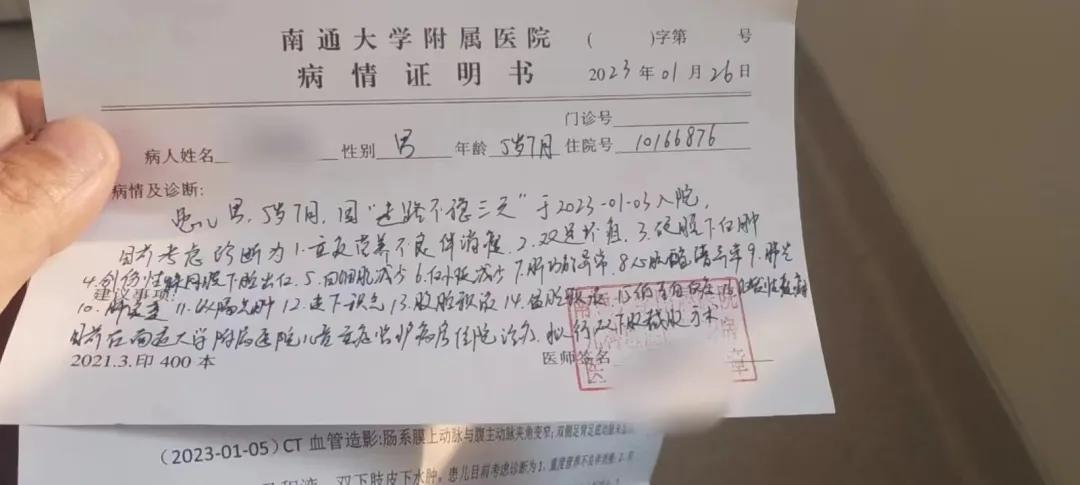 南通大学附属医院 ( )字第 号
病情证明书 2023年01月26日
门诊号
病人姓名 性别 男 年龄 5岁7月 住院号 10166876
病情及诊断:
患儿 男, 5岁7月, 因"走路不稳三天"于2023-01-03入院,
目前考虑诊断为 1.重度营养不良伴消瘦. 2.双足坏疽. 3.硬膜下血肿
4.外伤性蛛网膜下腔出血. 5.白细胞减少 6.血小板减少 7.肝功能异常. 8.心肌酶谱异常 9.肺炎
建议事项:
10. 11. 12.皮下积气 13.胸腔积液 14.盆腔积液 15.低蛋白血症 16.
目前在南通大学附属医院儿童重症监护病房住院诊治, 拟行双下肢截肢手术
医师签名
2021.3.印 400 本
(2023-01-05) CT 血管造影:肠系膜上动脉与腹主动脉夹角变窄; 双侧足背足底动脉
积液 双下肢皮下水肿。患儿目前考虑诊断为 1、重度营养不良伴消瘦; 2、